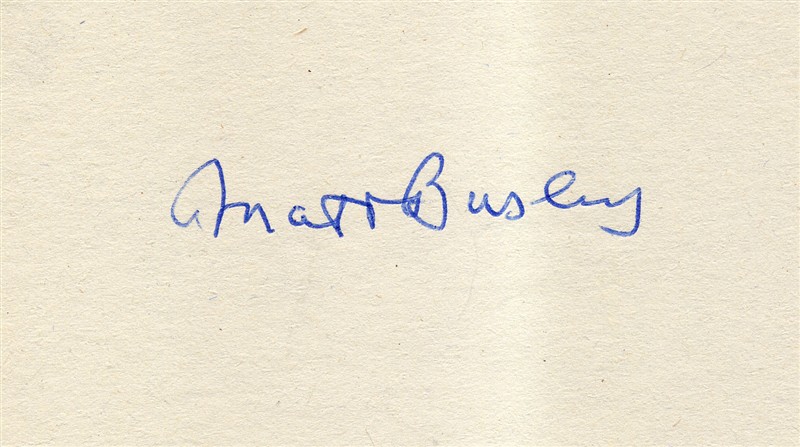 Matt Busby